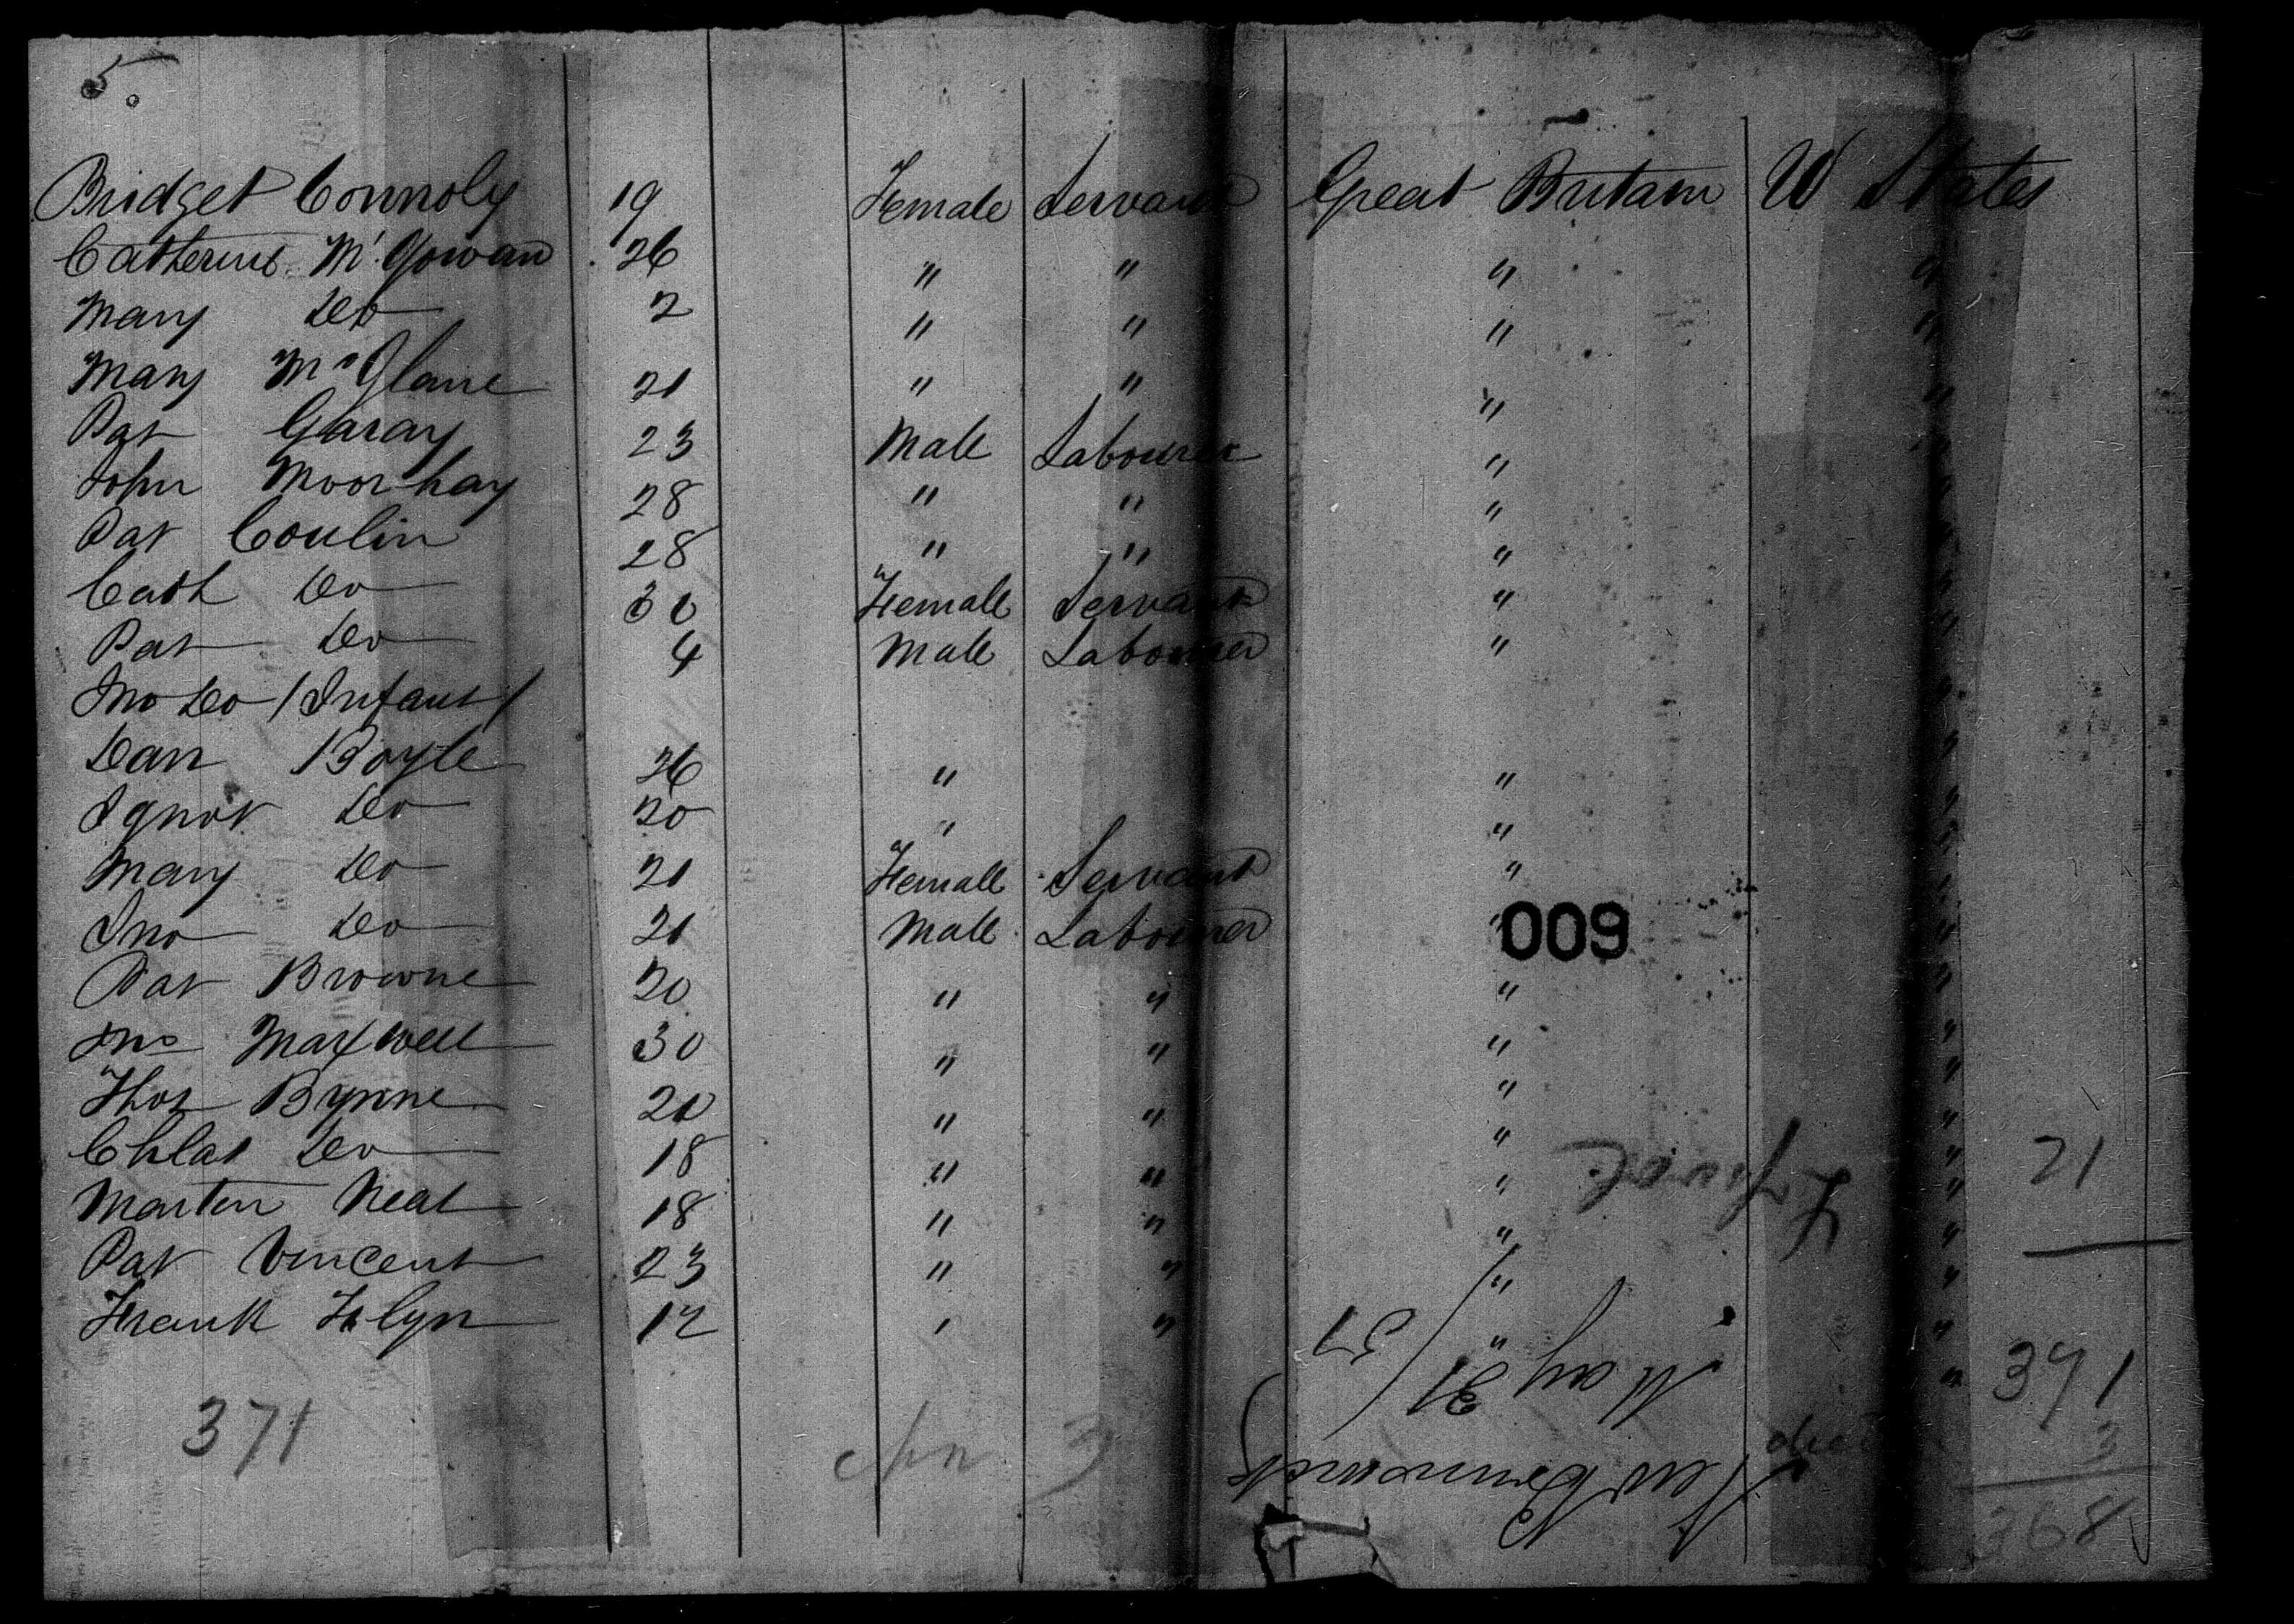 5.
Bridget Connoly 19 Female Servant Great Britain U States
Catherine McGowan 26 " " " "
Mary Do 2 " " " "
Mary McGlane 21 " " " "
Pat Garay 23 Male Labourer " "
John Moorhay 28 " " " "
Pat Coulin 28 " " " "
Cath Do 30 Female Servant " "
Pat Do 4 Male Labourer " "
Jno Do (Infant) "
Dan Boyle 26 " " "
Do 20 " " "
Mary Do 21 Female Servant " "
Jno Do 21 Male Labourer " "
009
Pat Browne 20 " " " "
Jno Maxwell 30 " " " "
Thos Byrne 20 " " " "
Do 18 " " " "
Martin Neal 18 " " " "
Pat Vincent 23 " " " "
Frank Flyn 17 " " " "
371
21
371
3
368
New Brunswick
May 31/51
Liverpool